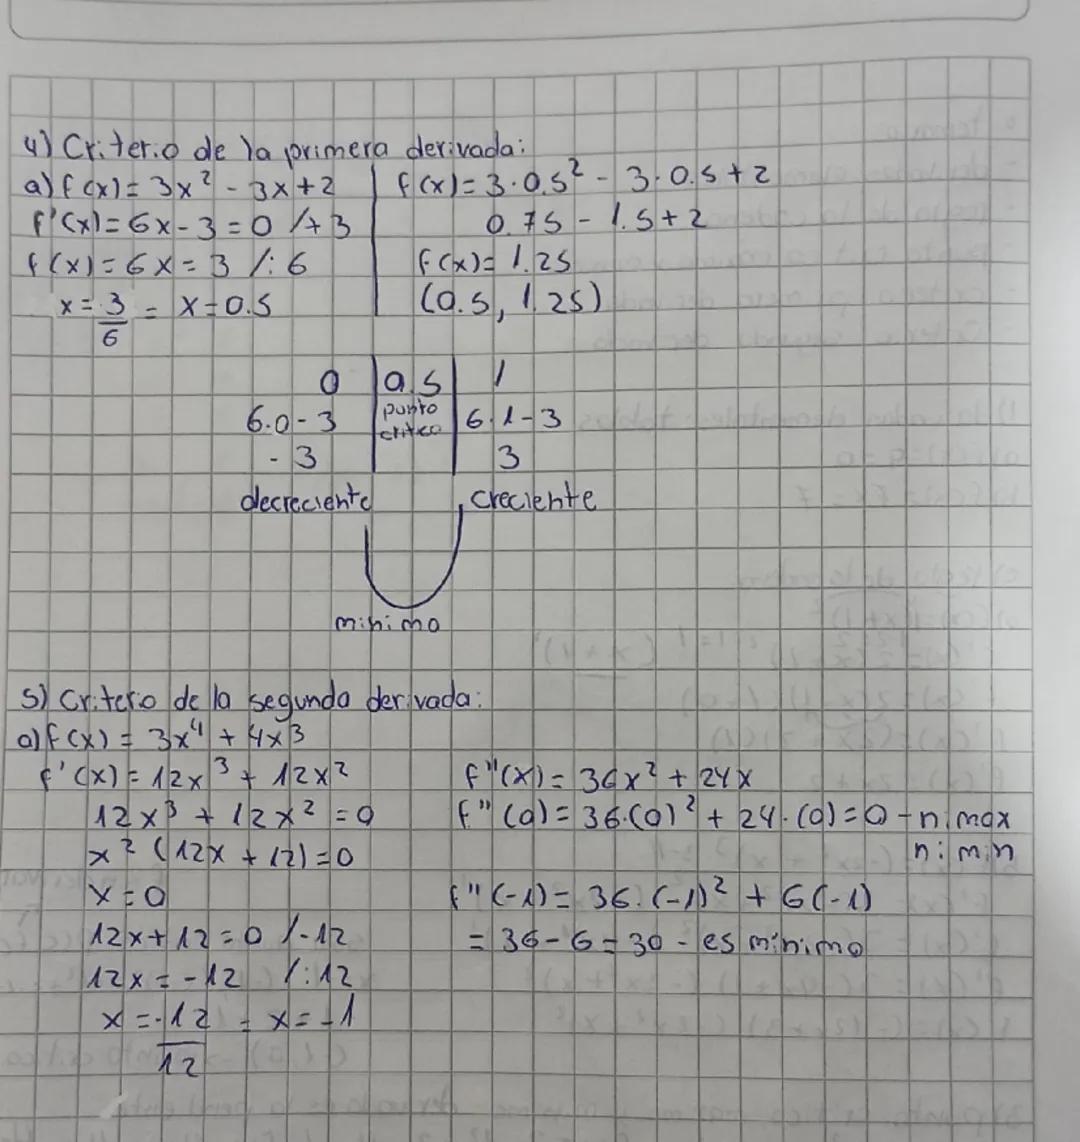 4) Criterio de la primera derivada:
a) f(x) = 3x² - 3x + 2
f'(x) = 6x - 3 = 0 /+3
f(x) = 6x = 3 /:6
x = 3/6 = x = 0.5
f(x) = 3·0.5² - 3·0.5 + 2
0.75 - 1.5 + 2
f(x) = 1.25
(0.5, 1.25)
0 | 0.5 | 1
6·0 - 3 | punto critico | 6·1 - 3
-3 | | 3
decreciente creciente
minimo
5) Critero de la segunda derivada:
a) f(x) = 3x⁴ + 4x³
f'(x) = 12x³ + 12x²
12x³ + 12x² = 0
x² (12x + 12) = 0
x = 0
12x + 12 = 0 /-12
12x = -12 /:12
x = -12/12 = x = -1
f''(x) = 36x² + 24x
f''(0) = 36·(0)² + 24·(0) = 0 - ni max
ni min
f''(-1) = 36·(-1)² + 6(-1)
= 36 - 6 = 30 - es minimo